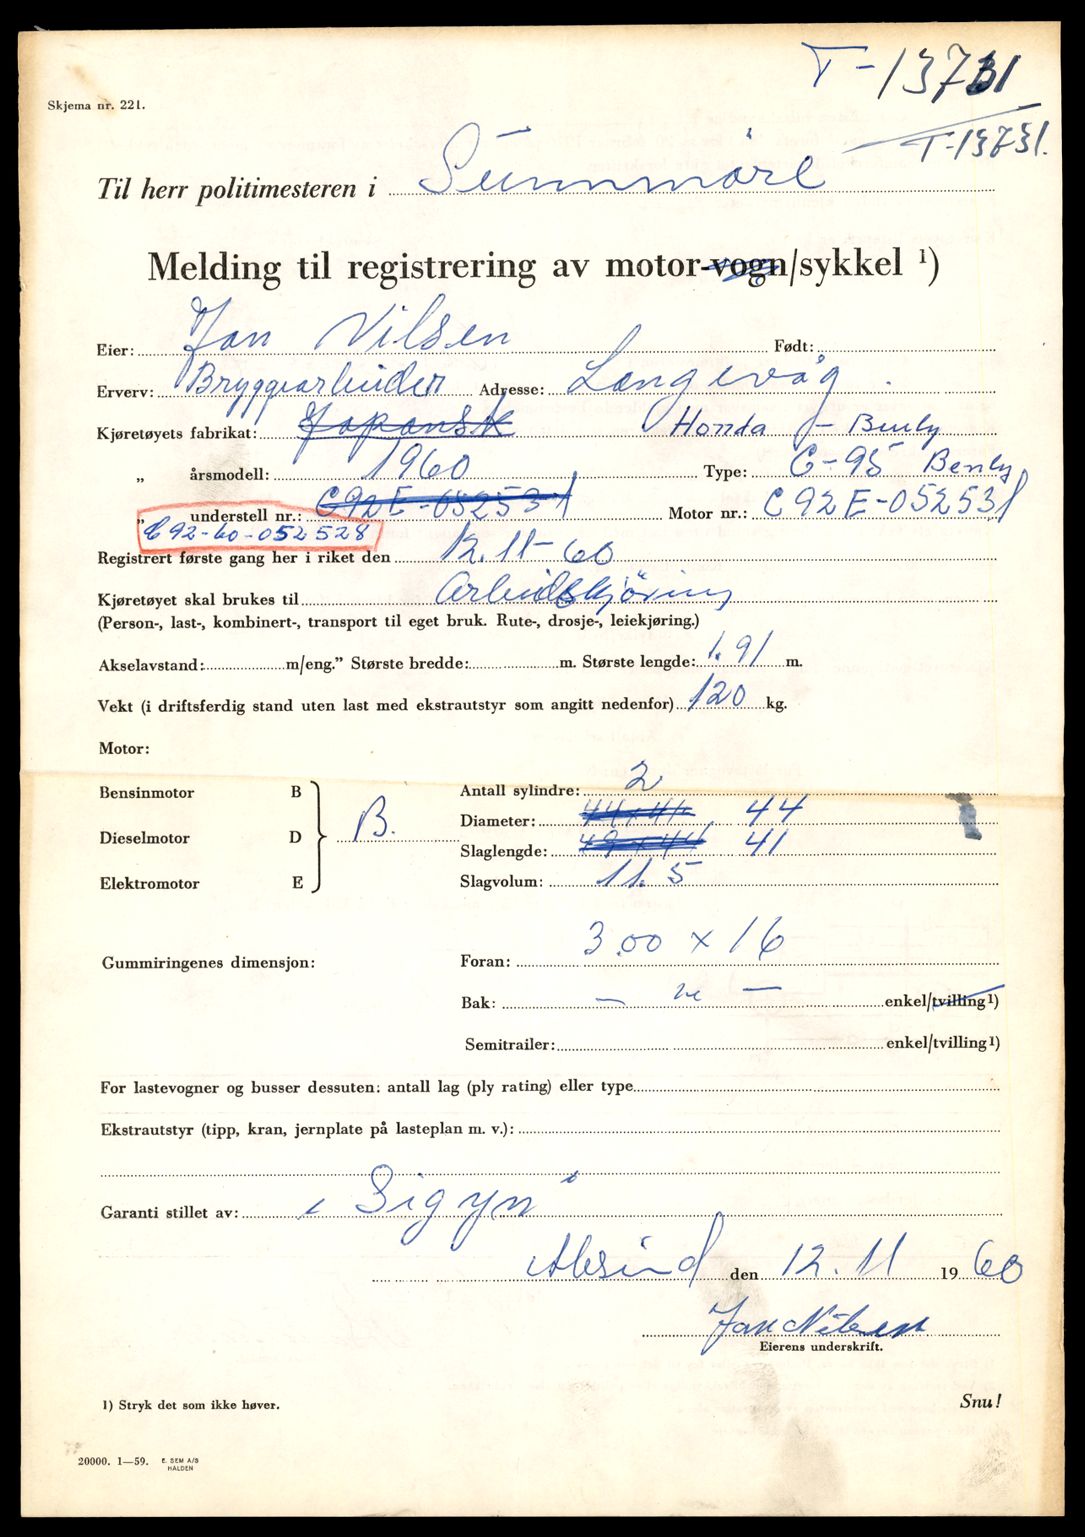 T-13731
Skjema nr. 221.
T-13731.
Til herr politimesteren i Sunnmöre
Melding til registrering av motor-vogn/sykkel ¹)
Eier: Jan Nilsen Født:
Erverv: Bryggearbeider Adresse: Langevåg.
Kjøretøyets fabrikat: Japansk Honda - Benly
„ årsmodell: 1960 Type: C-95 Benly
„ understell nr.: C92E-052531 Motor nr.: C92E-052531
C92-60-052528
Registrert første gang her i riket den 12.11-60
Kjøretøyet skal brukes til Arbeidskjöring
(Person-, last-, kombinert-, transport til eget bruk. Rute-, drosje-, leiekjøring.)
Akselavstand: m/eng.” Største bredde: m. Største lengde: 1.91 m.
Vekt (i driftsferdig stand uten last med ekstrautstyr som angitt nedenfor) 120 kg.
Motor:
Bensinmotor B Antall sylindre: 2
Diameter: 44x41 44
Dieselmotor D B.
Slaglengde: 41
Elektromotor E Slagvolum: 11.5
Gummiringenes dimensjon: Foran: 3.00 x 16
Bak: — " — enkel/tvilling¹)
Semitrailer: enkel/tvilling¹)
For lastevogner og busser dessuten: antall lag (ply rating) eller type
Ekstrautstyr (tipp, kran, jernplate på lasteplan m. v.):
Garanti stillet av: "Sigyn"
Ålesund den 12.11 1960
Jan Nilsen
Eierens underskrift.
1) Stryk det som ikke høver. Snu!
20000. 1—59. E. SEM A/S
HALDEN